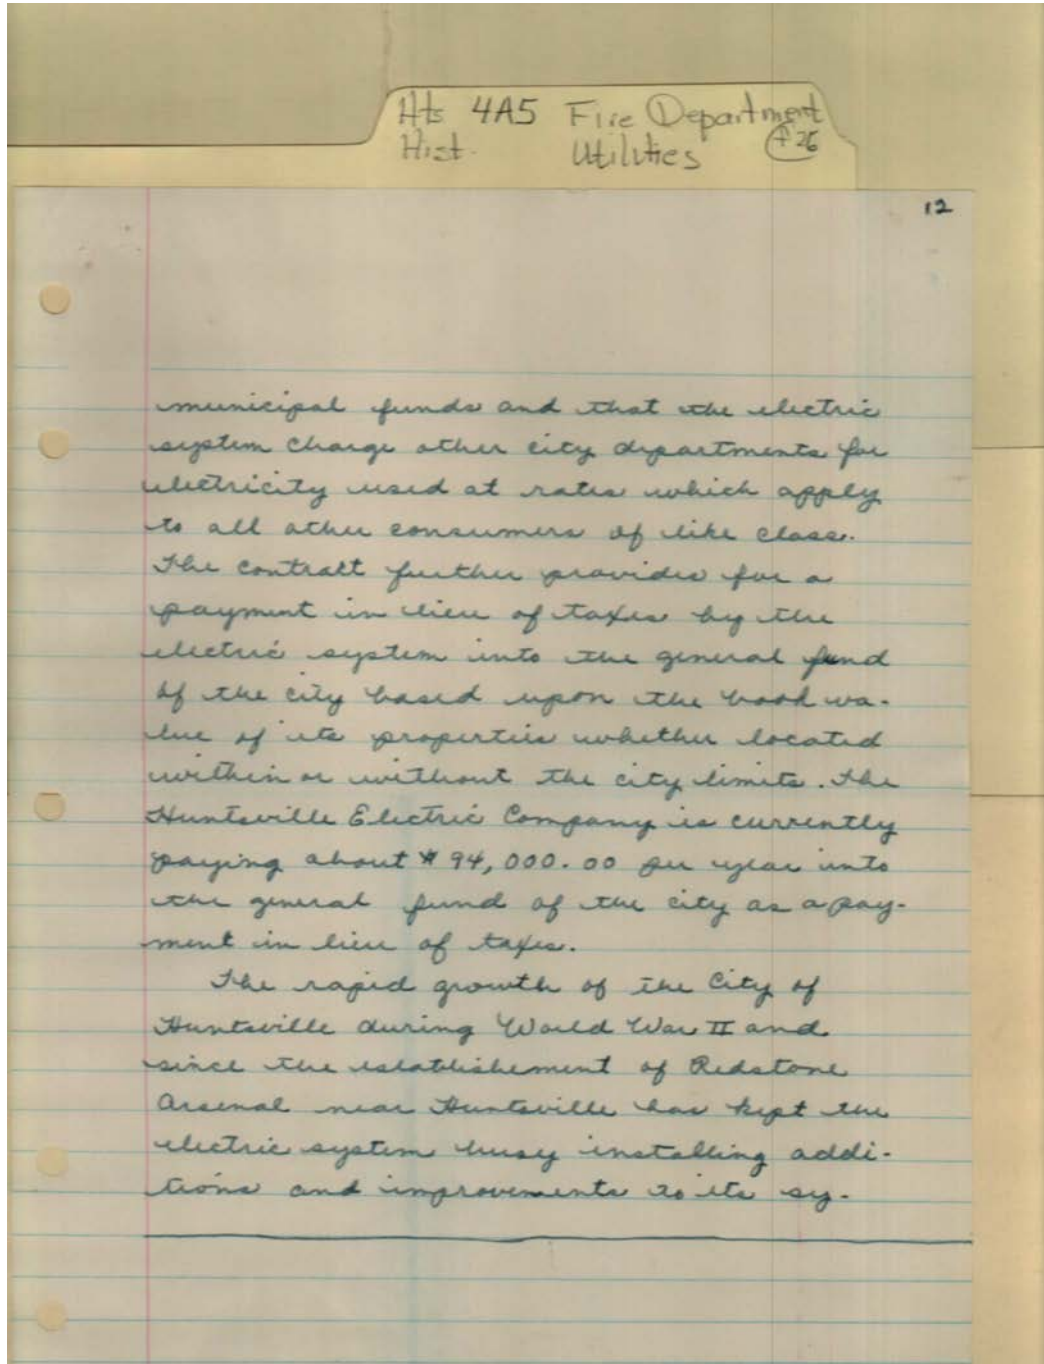 Hts 4A5 Fire Department
Hist. Utilities f 26
12
municipal funds and that the electric
system charge other city departments for
electricity used at rates which apply
to all other consumers of like class.
The contratt further provides for a
payment in lieu of taxes by the
electric system into the general fund
of the city based upon the book va-
lue of its properties whether located
within or without the city limits. The
Huntsville Electric Company is currently
paying about $94,000.00 per year into
the general fund of the city as a pay-
ment in lieu of taxes.
The rapid growth of the City of
Huntsville during World War II and
since the establishement of Redstone
Arsenal near Huntsville has kept the
electric system busy installing addi-
tions and improvements to its sy-